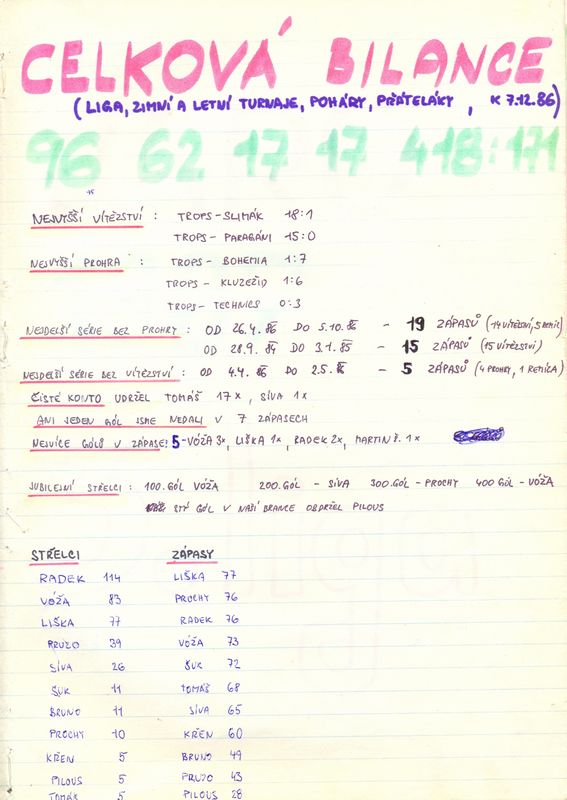 CELKOVÁ BILANCE
(LIGA, ZIMNÍ A LETNÍ TURNAJE, POHÁRY, PŘÁTELÁKY, K 7.12.86)
96 62 17 17 418:171
NEJVYŠŠÍ VÍTĚZSTVÍ : TROPS-SLIMÁK 18:1
TROPS- PARAGÁNI 15:0
NEJVYŠŠÍ PROHRA : TROPS- BOHEMIA 1:7
TROPS- KLUZEŽID 1:6
TROPS- TECHNICS 0:3
NEJDELŠÍ SÉRIE BEZ PROHRY : OD 26.4. 86 DO 5.10. 86 - 19 ZÁPASŮ (14 VÍTĚZSTVÍ, 5 REMÍZ)
OD 28.9. 84 DO 3.1. 85 - 15 ZÁPASŮ (15 VÍTĚZSTVÍ)
NEJDELŠÍ SÉRIE BEZ VÍTĚZSTVÍ : OD 4.4. 86 DO 2.5. 86 - 5 ZÁPASŮ (4 PROHRY, 1 REMÍZA)
ČISTÉ KONTO UDRŽEL TOMÁŠ 17x, SÍVA 1x
ANI JEDEN GÓL JSME NEDALI V 7 ZÁPASECH
NEJVÍCE GÓLŮ V ZÁPASE: 5-VÓŽA 3x, LIŠKA 1x, RADEK 2x, MARTIN Ř. 1x
JUBILEJNÍ STŘELCI : 100. GÓL VÓŽA 200. GÓL - SÍVA 300. GÓL - PROCHY 400 GÓL - VÓŽA
STÝ GÓL V NAŠÍ BRANCE OBDRŽEL PILOUS
STŘELCI ZÁPASY
RADEK 114 LIŠKA 77
VÓŽA 83 PROCHY 76
LIŠKA 77 RADEK 76
PRUZO 39 VÓŽA 73
SÍVA 26 ŠUK 72
ŠUK 11 TOMÁŠ 68
BRUNO 11 SÍVA 65
PROCHY 10 KŘEN 60
KŘEN 5 BRUNO 49
PILOUS 5 PRUZO 43
TOMÁŠ 5 PILOUS 28